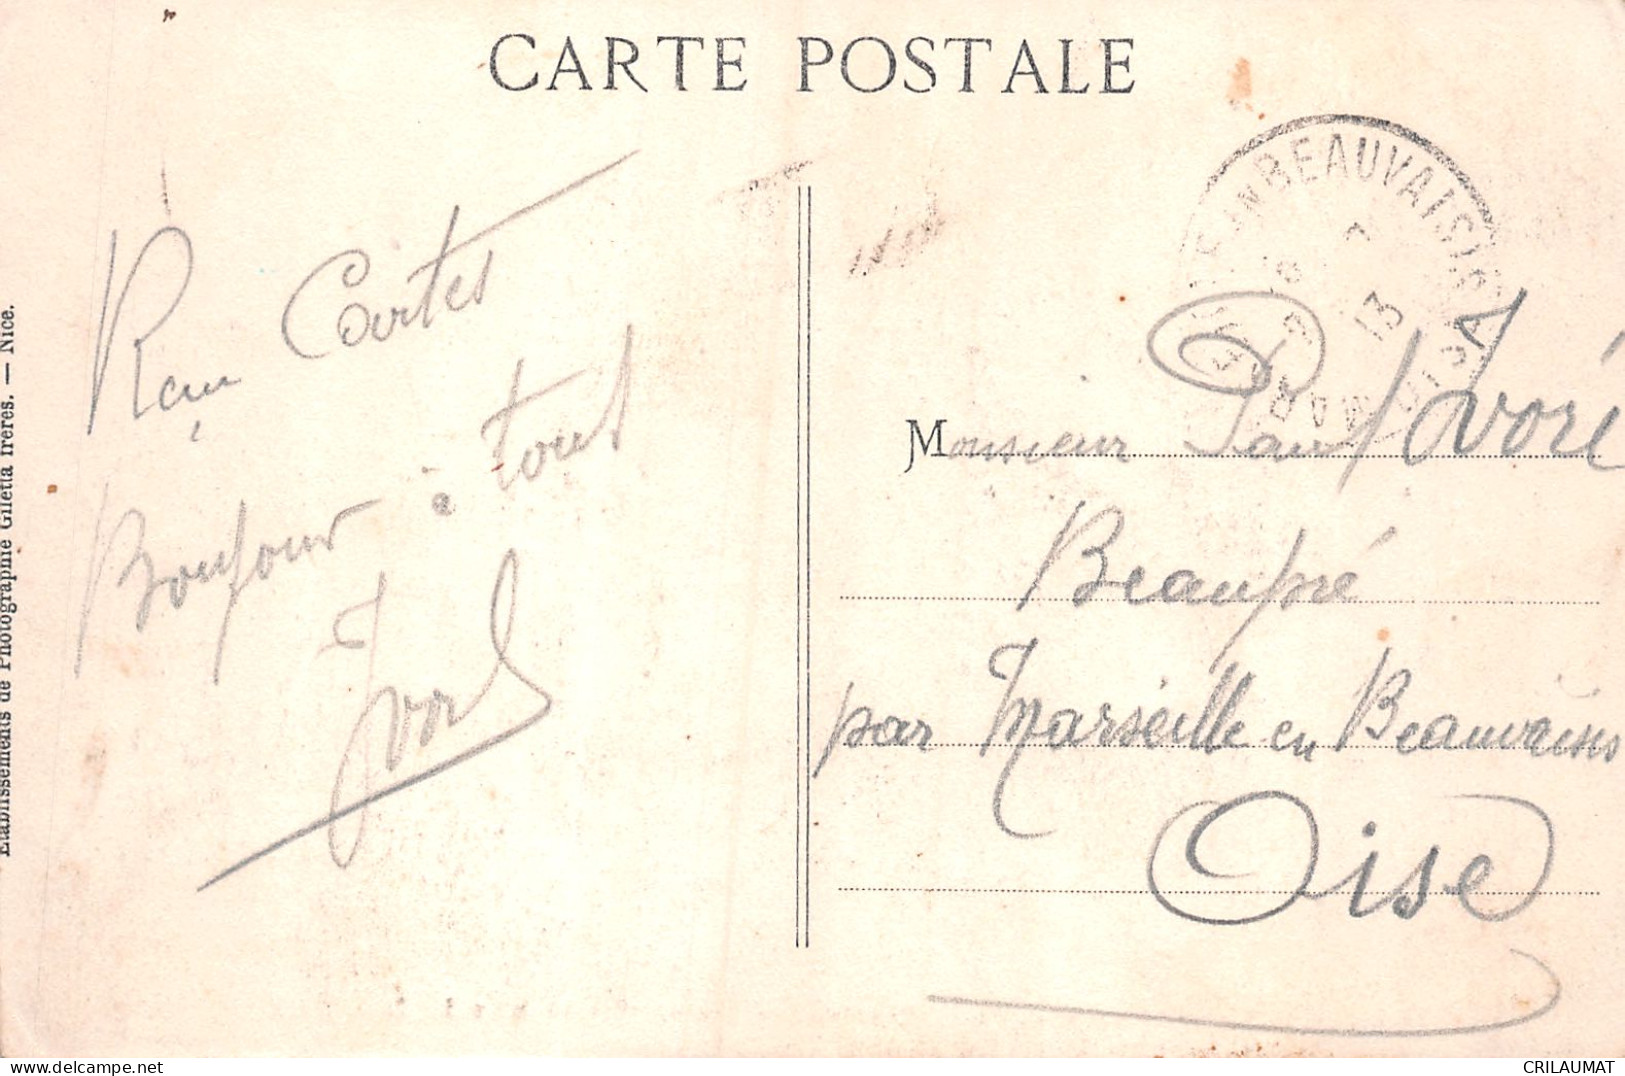 CARTE POSTALE
Etablissements de Photographie Giletta frères. — Nice.
Reçu Cartes
Bonjour à tous
Ivoré
BEAUVAISIS
13
Monsieur Paul Ivoré
Beaupré
par Marseille en Beauvaisis
Oise
CRILAUMAT